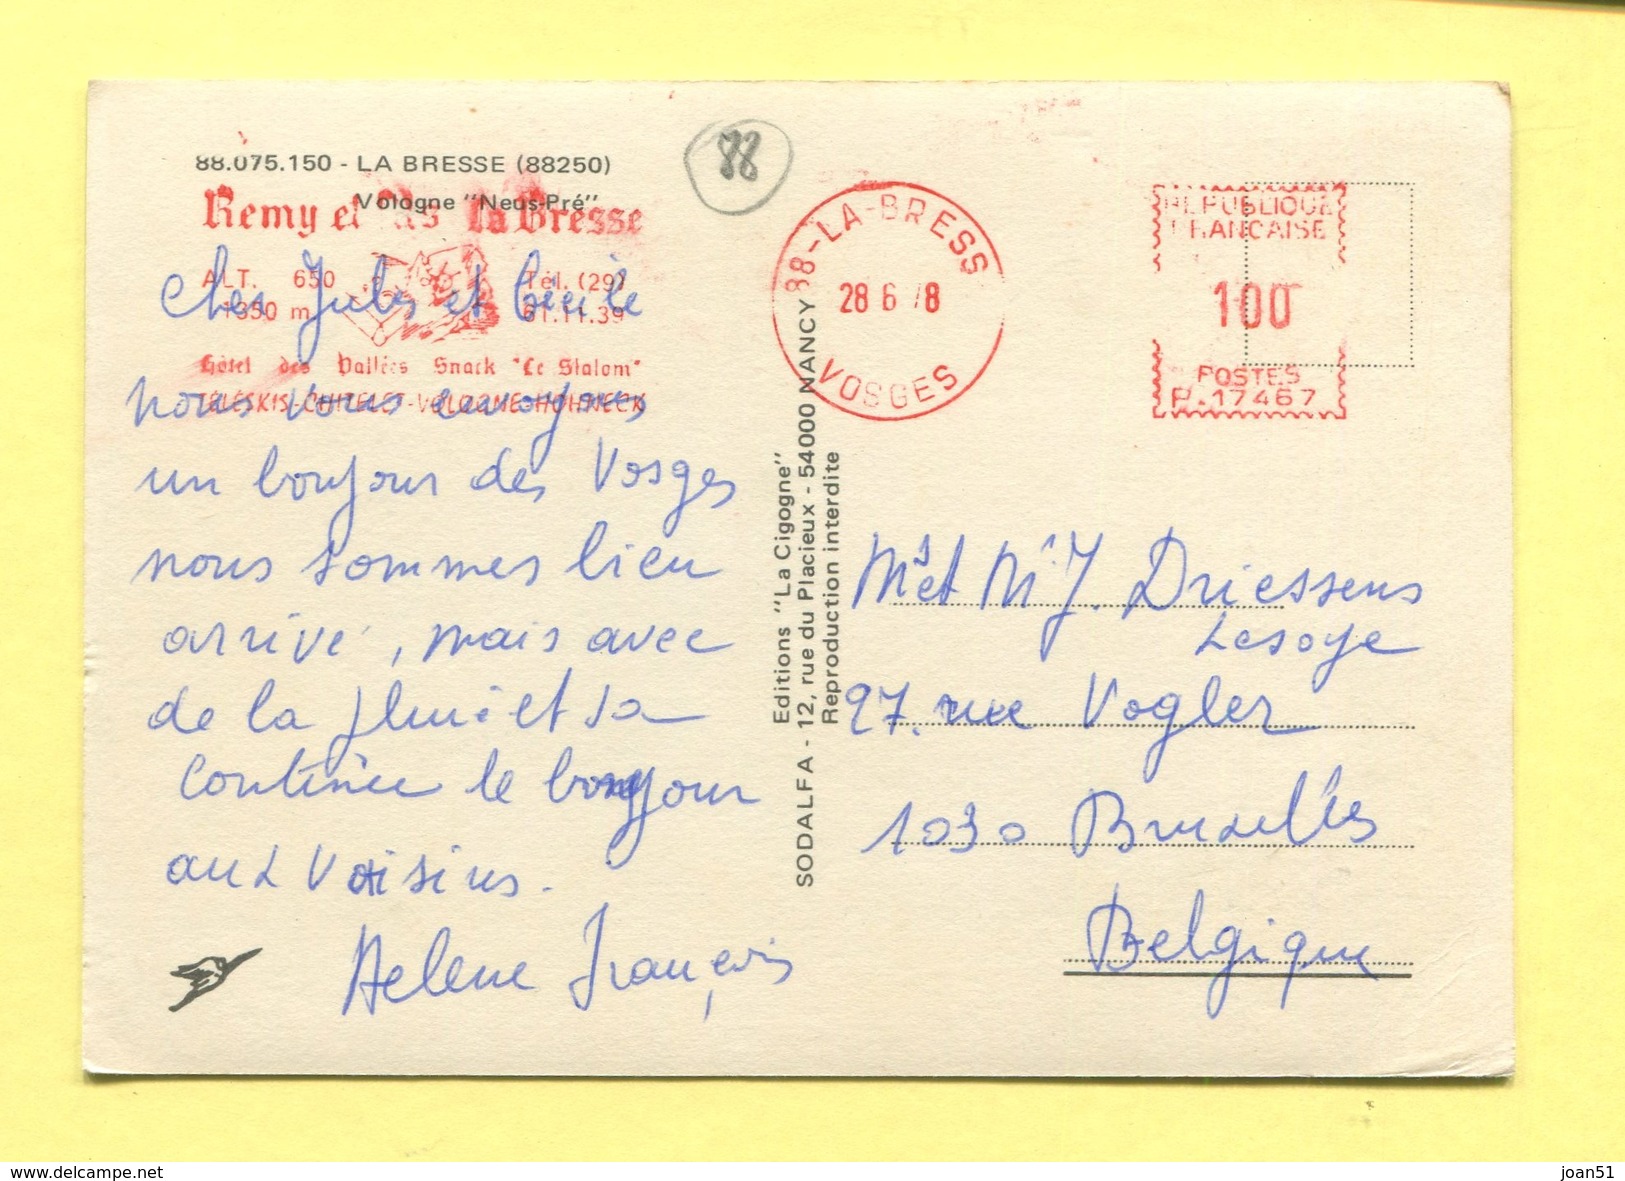 88.075.150 - LA BRESSE (88250)
Vologne "Neus-Pré"
88
Remy et La Bresse
ALT. 650
1350 m
Tél. (29)
61.11.39
Hôtel des Vallées Snack "Le Slalom"
TÉLÉSKIS-CHITELET-VOLOGNE-HOHNECK
88-LA-BRESS
28 6 78
VOSGES
REPUBLIQUE
FRANCAISE
100
POSTES
P.17467
Cher Jules et Cécile
nous vous envoyons
un bonjour des Vosges
nous sommes bien
arrivé, mais avec
de la pluie et sa
continue le bonjour
aux voisins.
Helene François
Editions "La Cigogne"
SODALFA - 12, rue du Placieux - 54000 NANCY
Reproduction interdite
Mr et Me J. Driessens
Lesoye
97. rue Vogler
1030 Bruxelles
Belgique
www.delcampe.net
joan51